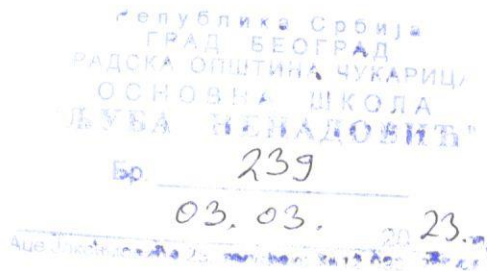 Република Србија
ГРАД БЕОГРАД
РАДСКА ОПШТИНА ЧУКАРИЦА
ОСНОВНА ШКОЛА
"ЉУБА НЕНАДОВИЋ"
Бр. 239
03. 03. 2023.